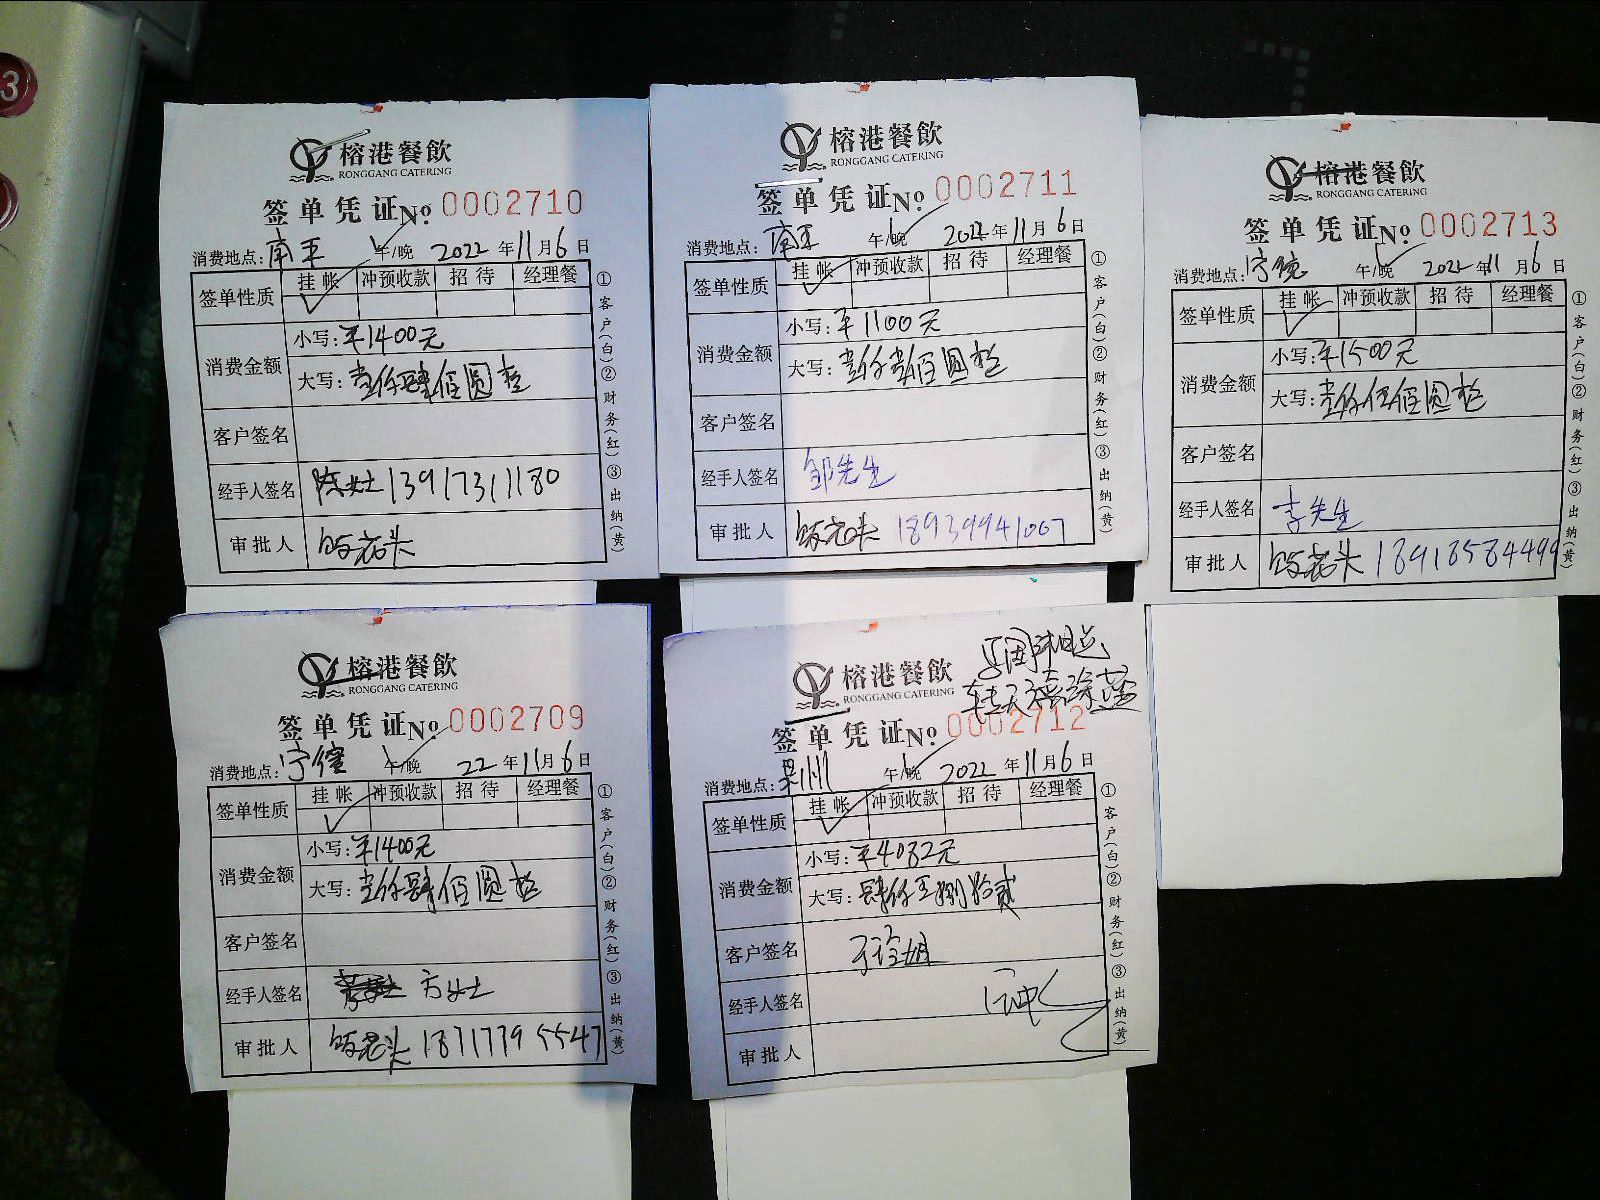 3
榕港餐飲
RONGGANG CATERING
签单凭证 No. 0002710
消费地点: 南平 午/晚 2022年11月6日
签单性质 挂帐 冲预收款 招待 经理餐
消费金额
小写: ¥1400元
大写: 壹仟肆佰圆整
客户签名
经手人签名 陈女士 13917311180
审批人 饭老头
①客户(白)②财务(红)③出纳(黄)
榕港餐飲
RONGGANG CATERING
签单凭证 No. 0002711
消费地点: 南平 午/晚 2022年11月6日
签单性质 挂帐 冲预收款 招待 经理餐
消费金额
小写: ¥1100元
大写: 壹仟壹佰圆整
客户签名
经手人签名 邹先生
审批人 饭老头 18939941067
①客户(白)②财务(红)③出纳(黄)
榕港餐飲
RONGGANG CATERING
签单凭证 No. 0002713
消费地点: 宁德 午/晚 2022年11月6日
签单性质 挂帐 冲预收款 招待 经理餐
消费金额
小写: ¥1500元
大写: 壹仟伍佰圆整
客户签名
经手人签名 李先生
审批人 饭老头 18918584499
①客户(白)②财务(红)③出纳(黄)
榕港餐飲
RONGGANG CATERING
签单凭证 No. 0002709
消费地点: 宁德 午/晚 22年11月6日
签单性质 挂帐 冲预收款 招待 经理餐
消费金额
小写: ¥1400元
大写: 壹仟肆佰圆整
客户签名
经手人签名 方女士
审批人 饭老头 18717795547
①客户(白)②财务(红)③出纳(黄)
榕港餐飲
RONGGANG CATERING
签单凭证 No. 0002712
消费地点: 泉州 午/晚 2022年11月6日
签单性质 挂帐 冲预收款 招待 经理餐
消费金额
小写: ¥4082元
大写: 肆仟零捌拾贰
客户签名
经手人签名
审批人
①客户(白)②财务(红)③出纳(黄)